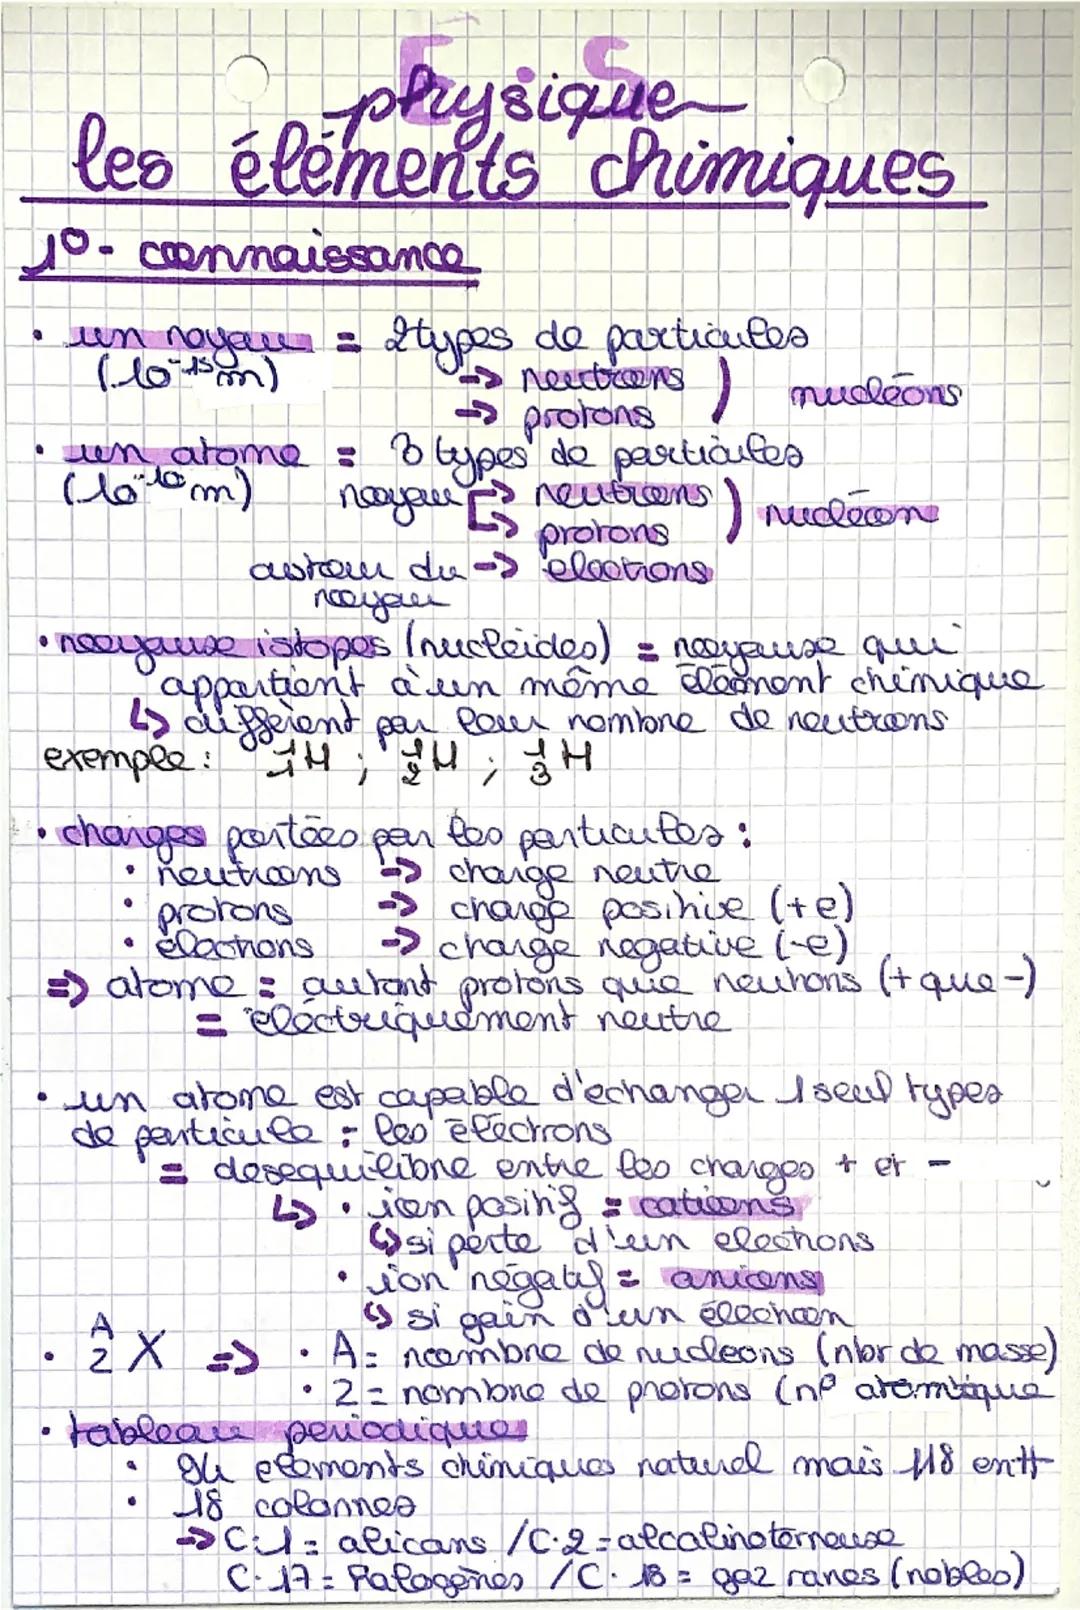 physique
les éléments chimiques
1°- connaissance
• un noyau = 2types de particules
(10⁻¹⁵m) -> neutrons
-> protons ) nucléons
• un atome = 3 types de particules
(10⁻¹⁰m) noyau -> neutrons
-> protons ) nucléon
autour du -> électrons
noyau
• noyaux istopes (nucléides) = noyaux qui
appartient à un même élément chimique
↳ différent par leur nombre de neutrons
exemple : ¹₁H ; ¹₂H ; ¹₃H
• charges portées par les particules :
• neutrons => charge neutre
• protons => charge positive (+e)
• électrons => charge negative (-e)
=> atome = autant protons que neutrons (+ que -)
= électriquement neutre
• un atome est capable d'echanger 1 seul types
de particule = les électrons
= desequilibre entre les charges + et -
↳ • ion positif = cations
↳ si perte d'un electrons
• ion négatif = anions
↳ si gain d'un électron
• ᴬ zX => • A = nombre de nucleons (nbr de masse)
• Z = nombre de protons (n° atomique
• tableau periodique
• 94 elements chimiques naturel mais 118 entt
• 18 colonnes
-> C.1 = alicans / C.2 = alcalinoterreuse
C.17 = Halogènes / C.18 = gaz rares (nobles)